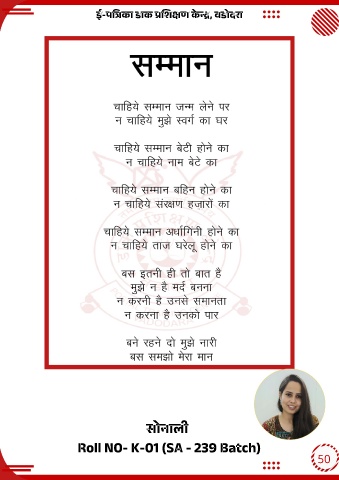 ई-पत्रिका डाक प्रशिक्षण केन्द्र, वडोदरा
सम्मान
चाहिये सम्मान जन्म लेने पर
न चाहिये मुझे स्वर्ग का घर
चाहिये सम्मान बेटी होने का
न चाहिये नाम बेटे का
चाहिये सम्मान बहिन होने का
न चाहिये संरक्षण हजारों का
चाहिये सम्मान अर्धांगिनी होने का
न चाहिये ताज घरेलू होने का
बस इतनी ही तो बात है
मुझे न है मर्द बनना
न करनी है उनसे समानता
न करना है उनको पार
बने रहने दो मुझे नारी
बस समझो मेरा मान
सोनाली
Roll NO- K-01 (SA - 239 Batch)
50